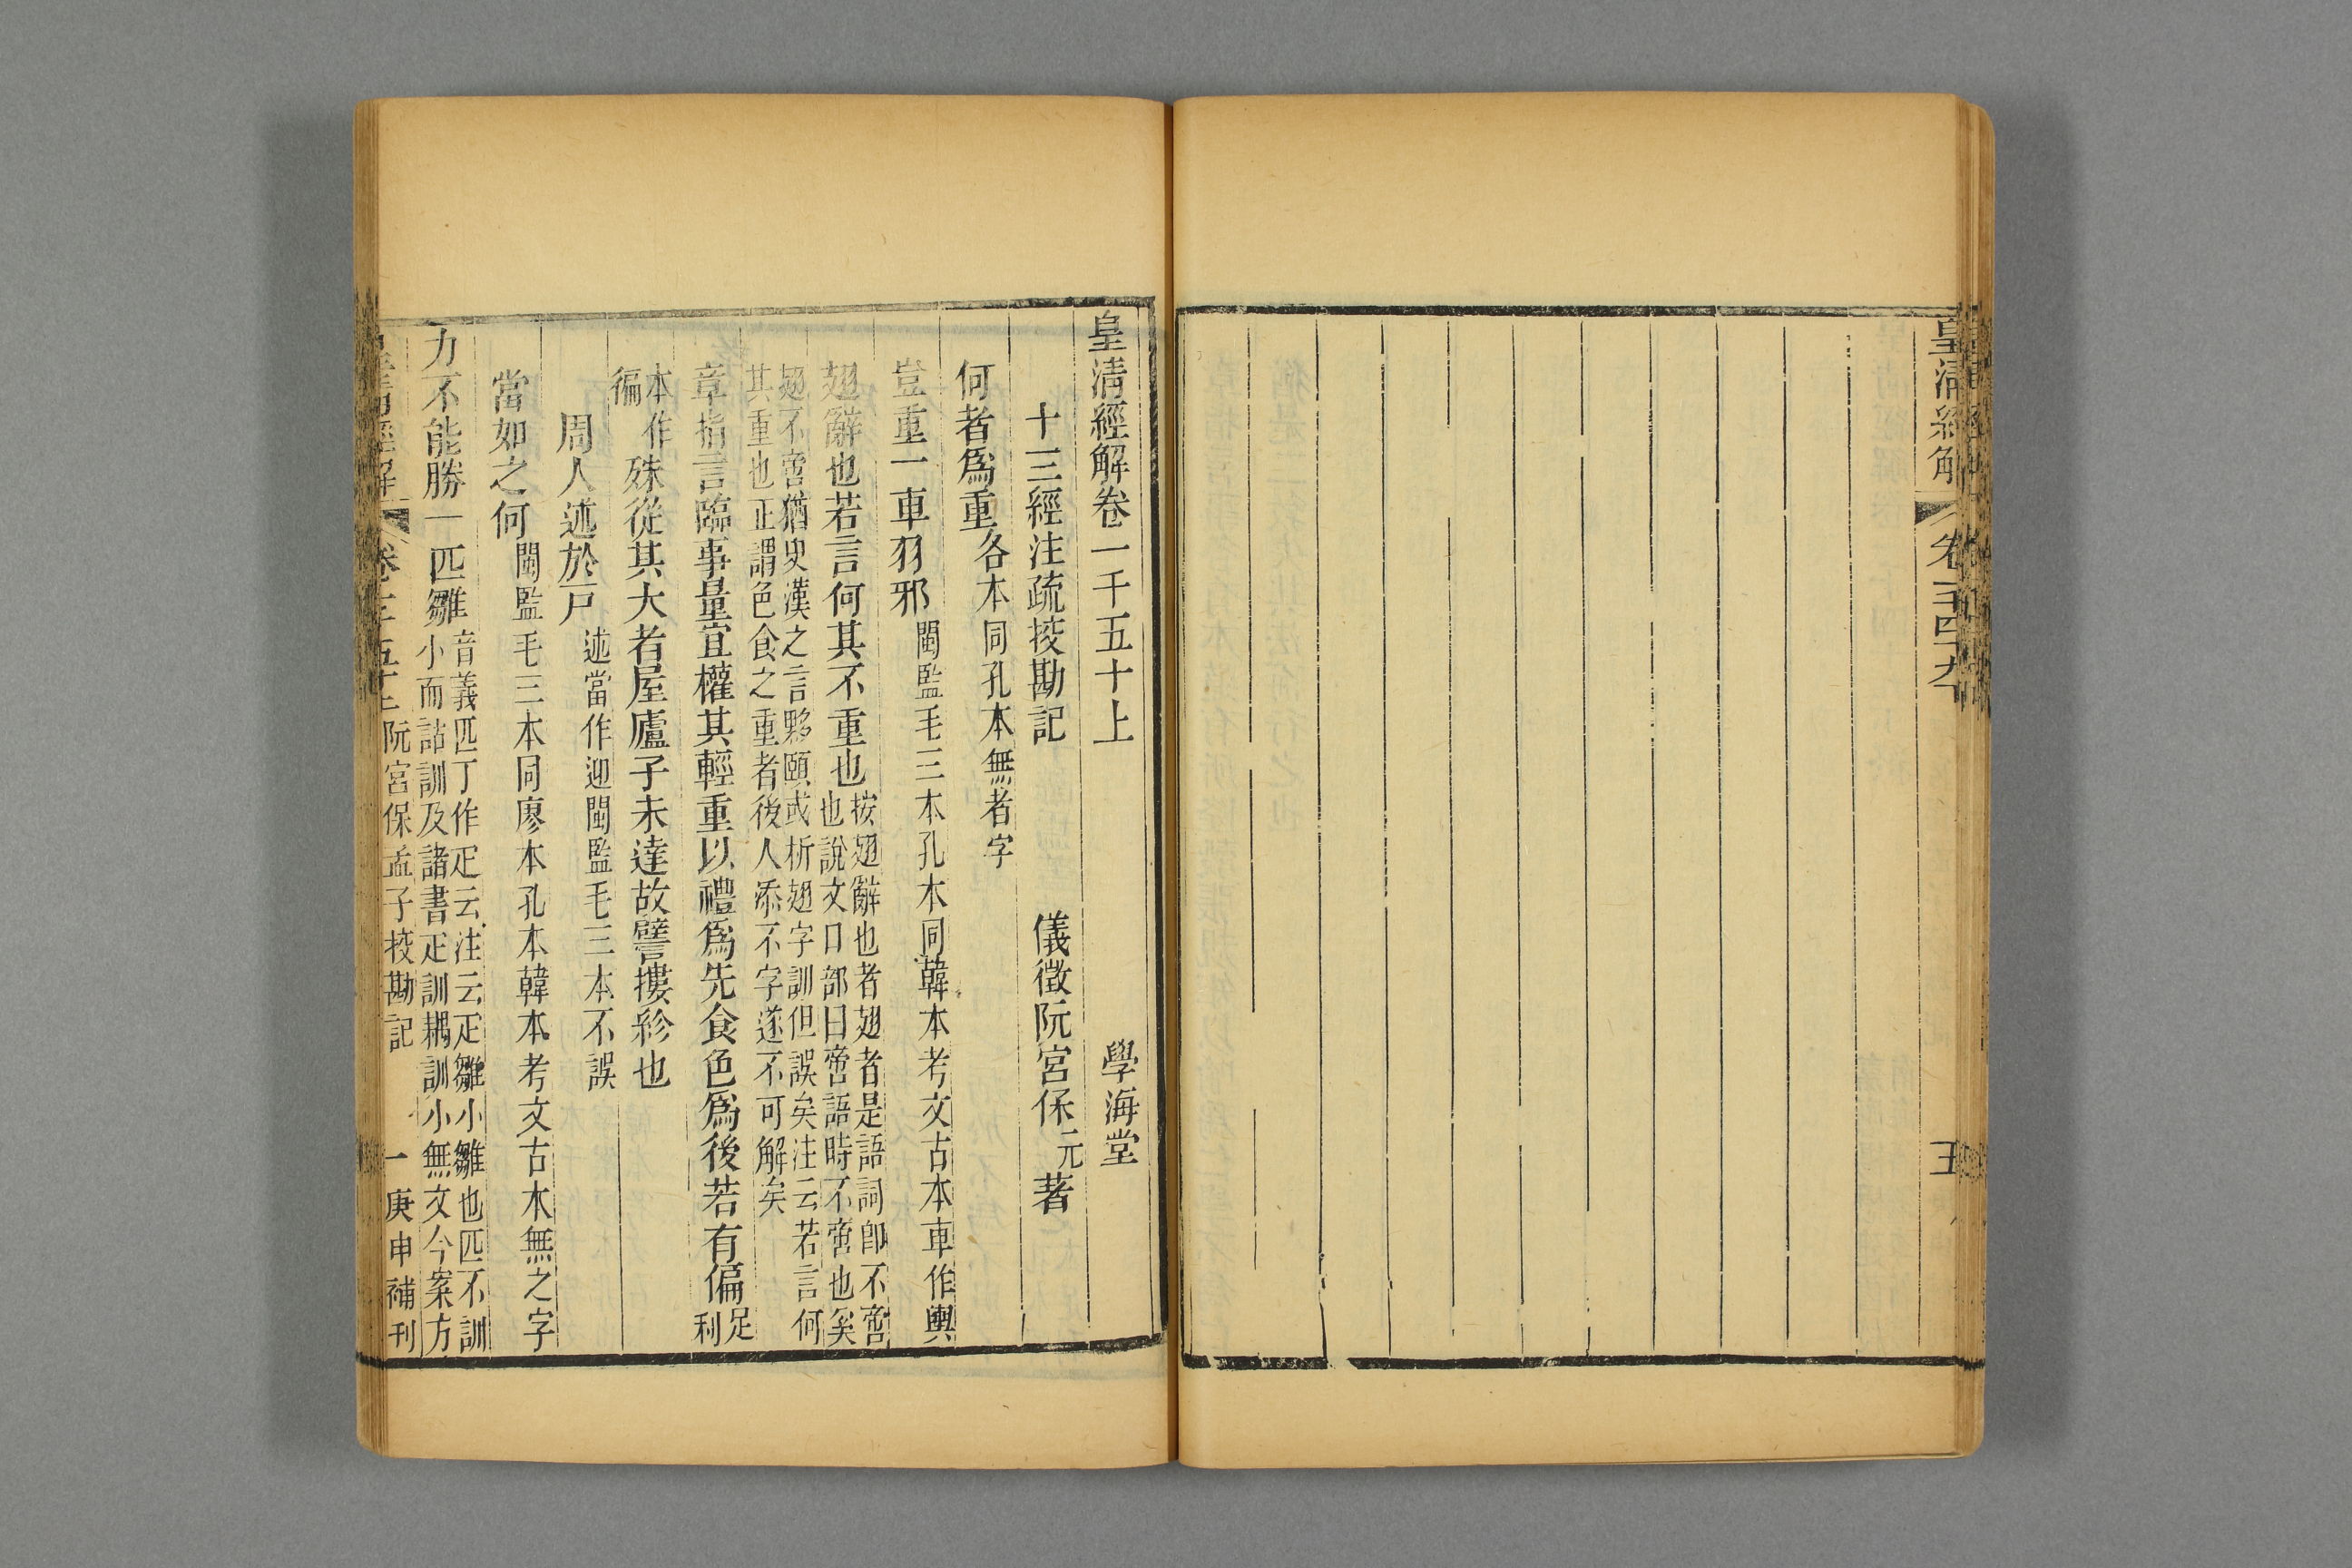 皇清經解
卷一千四十九
五
皇清經解卷一千五十上
學海堂
十三經注疏挍勘記
儀徵阮宮保元著
何者爲重各本同孔本無者字
豈重一車羽邪閩監毛三本孔本同韓本考文古本車作輿
翅辭也若言何其不重也按翅辭也者翅者是語詞卽不啻
也說文口部曰啻語時不啻也矣
翅不啻猶史漢之言夥頤或析翅字訓但誤矣注云若言何
其重也正謂色食之重者後人添不字遂不可解矣
章指言臨事量宜權其輕重以禮爲先食色爲後若有偏足
利
本作
徧殊從其大者屋廬子未達故譬摟紾也
周人述於戸述當作迎閩監毛三本不誤
當如之何閩監毛三本同廖本孔本韓本考文古本無之字
力不能勝一匹雛音義匹丁作疋云注云疋雛小雛也匹不訓
小而詁訓及諸書疋訓耦訓小無文今案方
皇清經解
卷一千五十上
阮宮保孟子挍勘記
一
庚申補刊